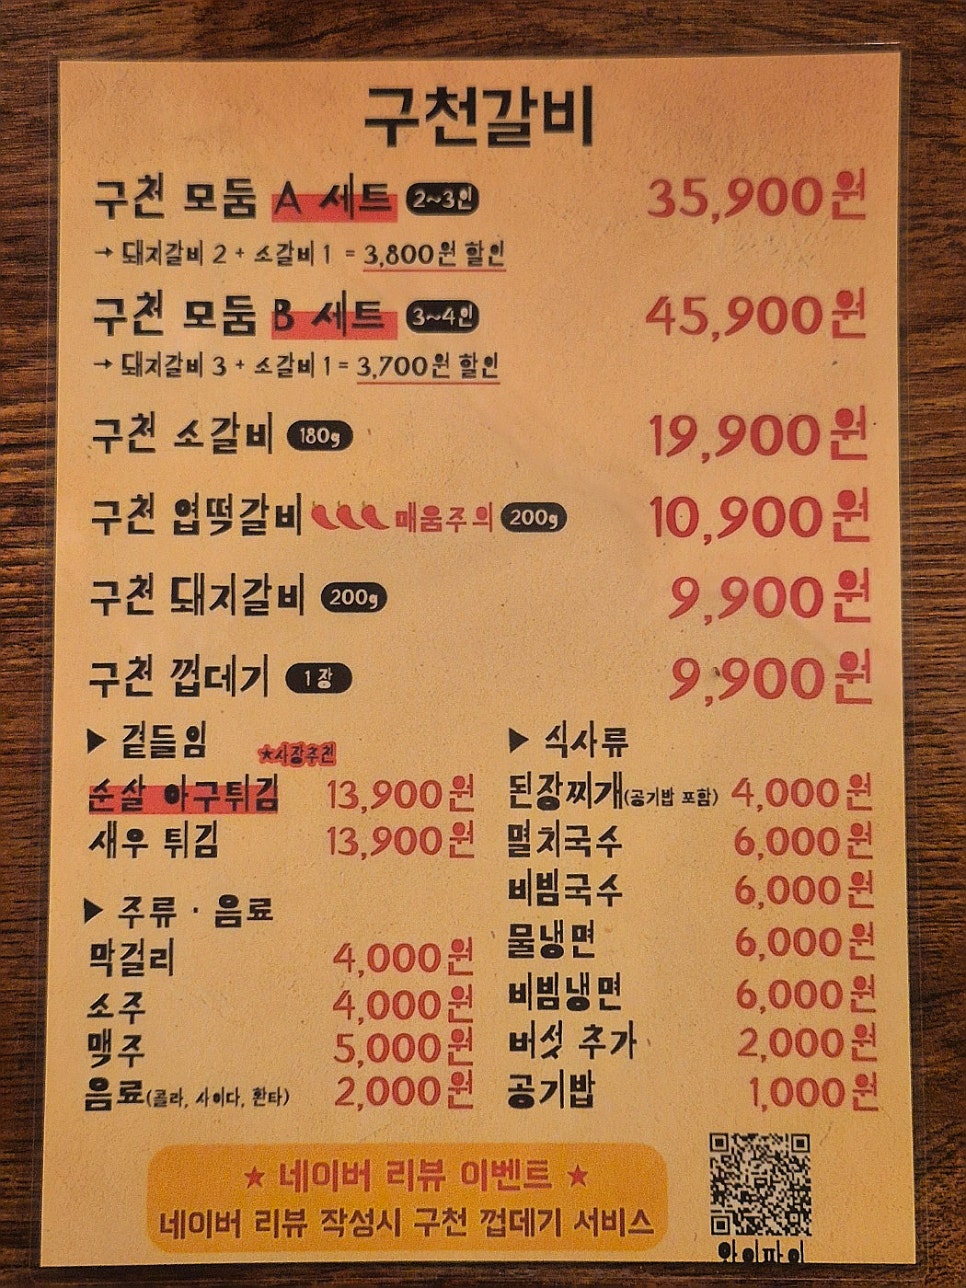 구천갈비
구천 모둠 A 세트 2~3인 35,900원
→ 돼지갈비 2 + 소갈비 1 = 3,800원 할인
구천 모둠 B 세트 3~4인 45,900원
→ 돼지갈비 3 + 소갈비 1 = 3,700원 할인
구천 소갈비 180g 19,900원
구천 엽떡갈비 매움주의 200g 10,900원
구천 돼지갈비 200g 9,900원
구천 껍데기 1장 9,900원
▶ 곁들임
★사장추천
순살 아구튀김 13,900원
새우 튀김 13,900원
▶ 주류 · 음료
막걸리 4,000원
소주 4,000원
맥주 5,000원
음료(콜라, 사이다, 환타) 2,000원
▶ 식사류
된장찌개(공기밥 포함) 4,000원
멸치국수 6,000원
비빔국수 6,000원
물냉면 6,000원
비빔냉면 6,000원
버섯 추가 2,000원
공기밥 1,000원
★ 네이버 리뷰 이벤트 ★
네이버 리뷰 작성시 구천 껍데기 서비스
와이파이